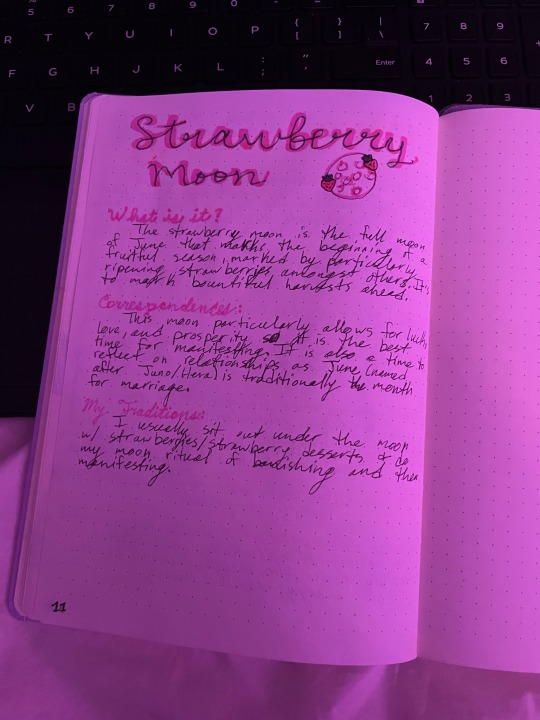 5 6 7 8 9 0
R T Y U I O P { [ } ] | \ 7 8 9
F G H J K L : ; " ' Enter 4 5 6
V B 1 2 3
Strawberry
Moon
What is it?
The strawberry moon is the full moon
of June that marks the beginning of a
fruitful season, marked by particularly
ripening strawberries amongst others. It is
to mark bountiful harvests ahead.
Correspondences:
This moon particularly allows for luck,
love, and prosperity so it is the best
time for manifesting. It is also a time to
reflect on relationships as June (named
after Juno/Hera) is traditionally the month
for marriage.
My Traditions:
I usually sit out under the moon
w/ strawberries/strawberry desserts & do
my moon ritual of banishing and then
manifesting.
11